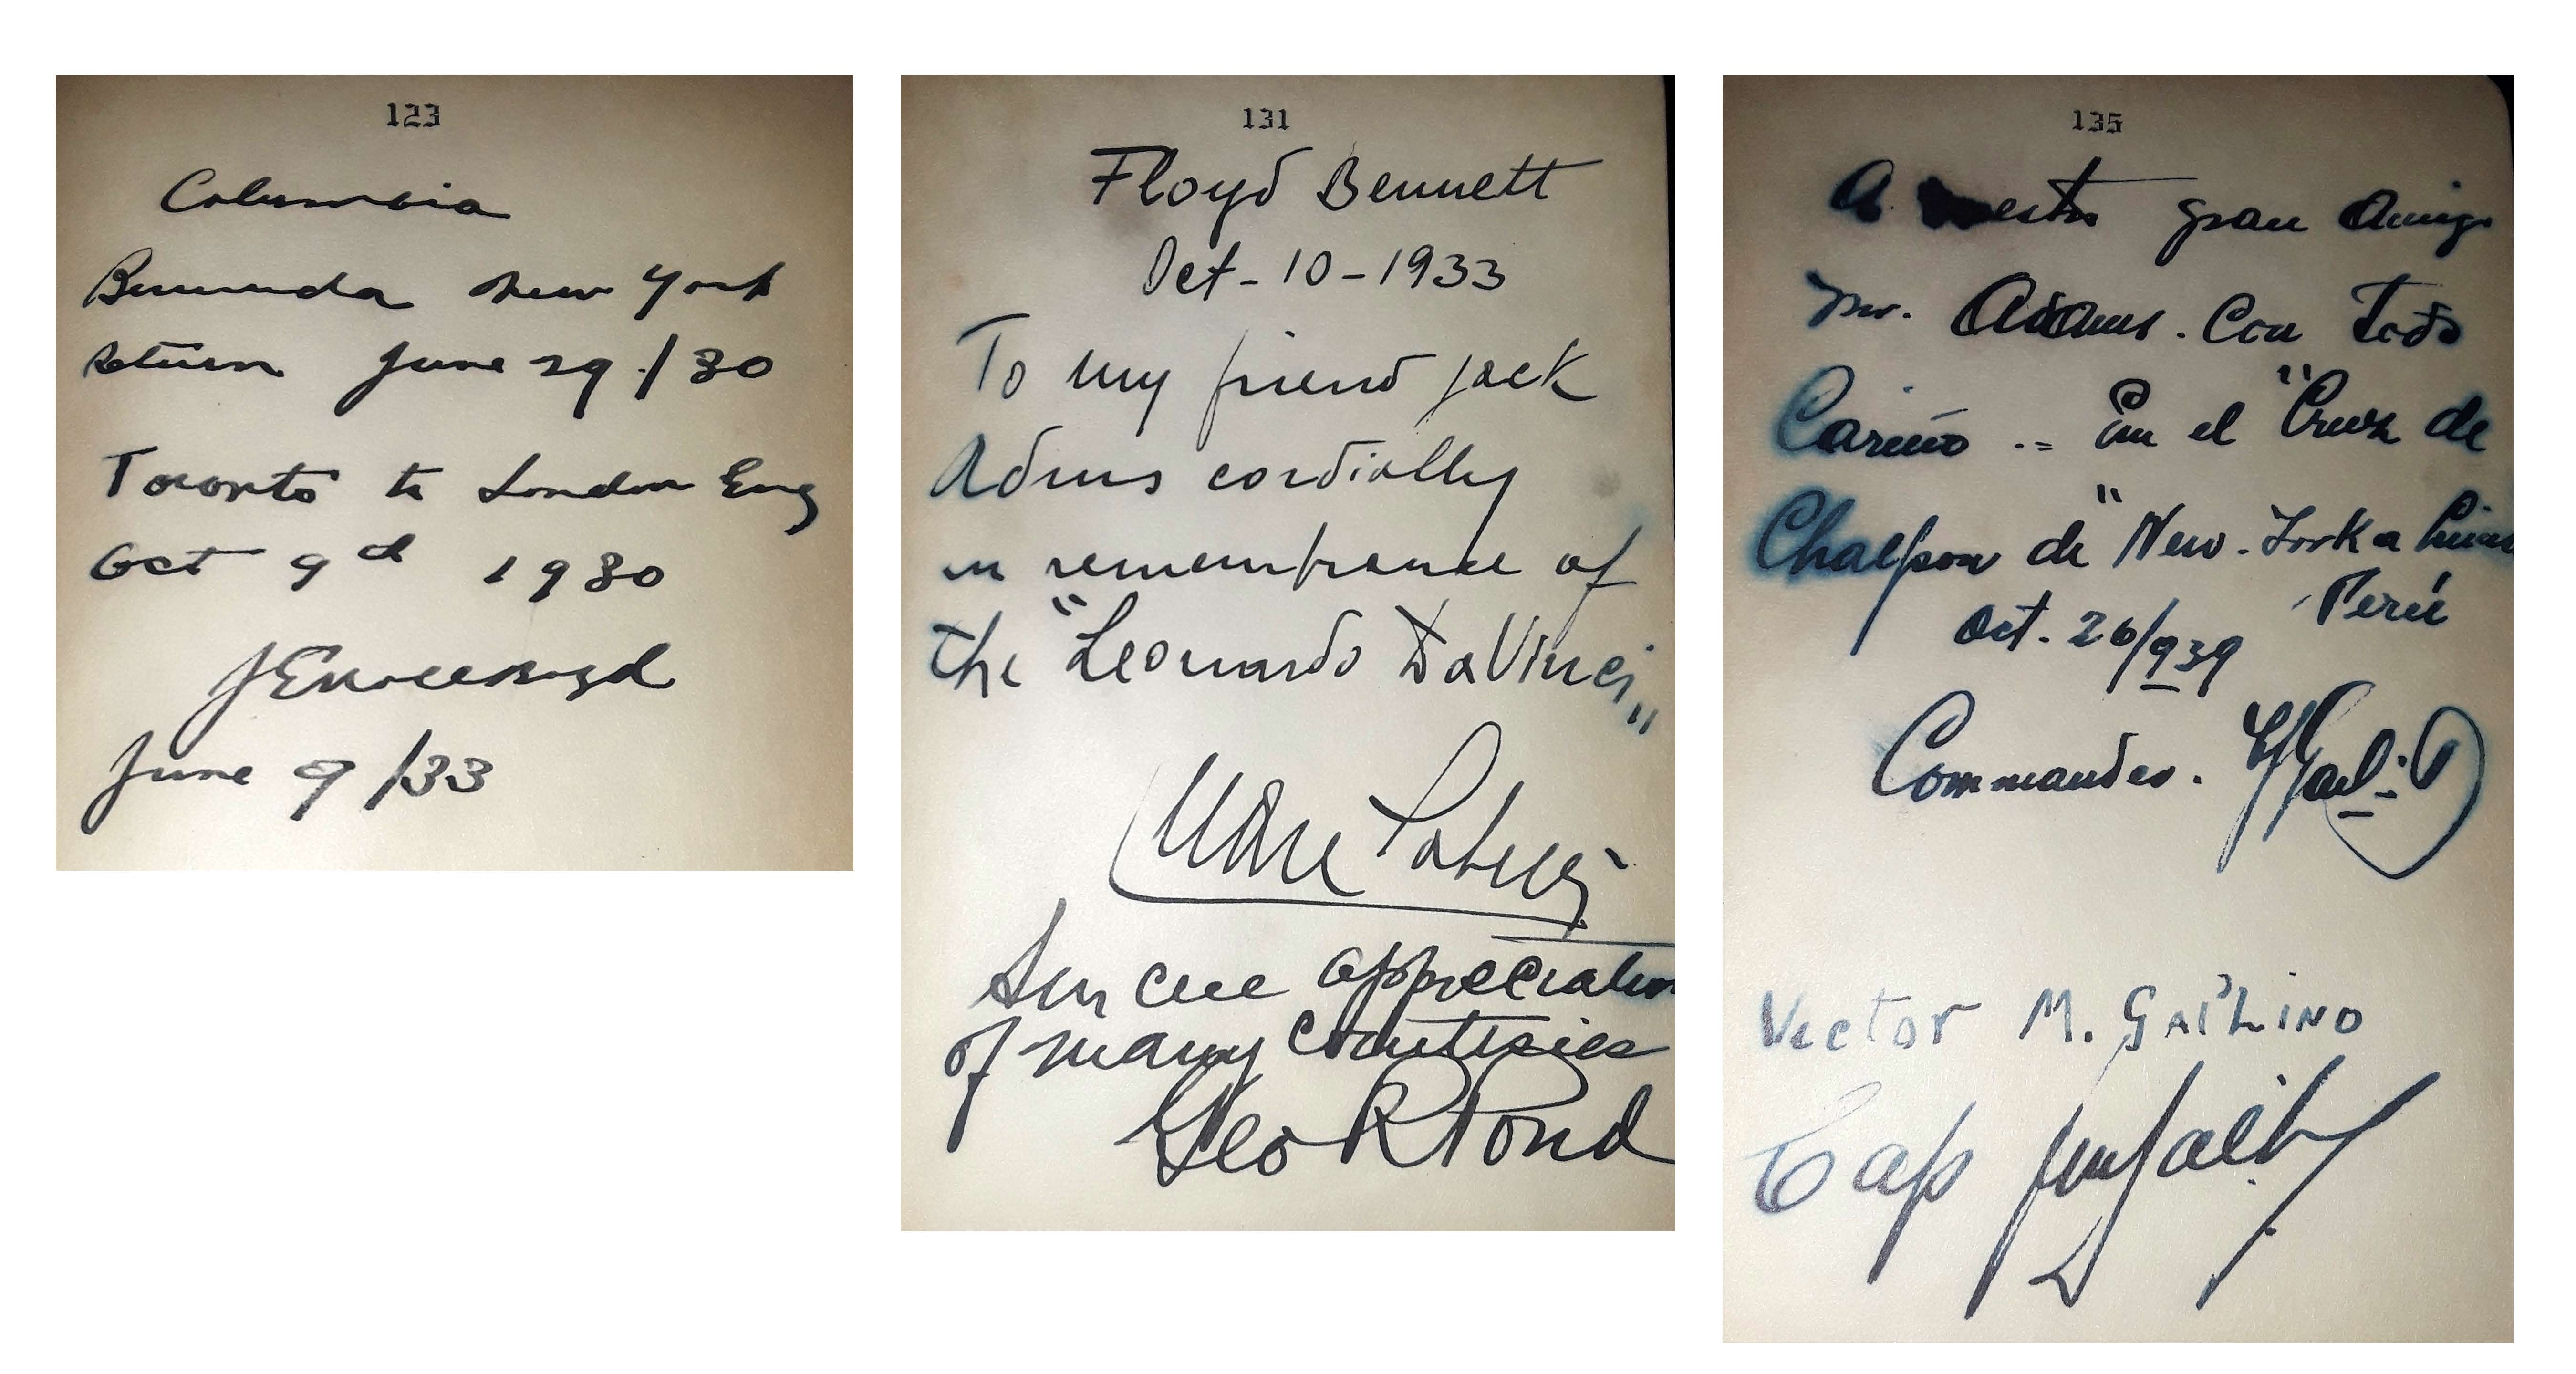 123
Columbia
Bermuda New York
return June 29/30
Toronto to London Eng
Oct 9th 1930
June 9/33
131
Floyd Bennett
Oct-10-1933
To my friend Jack
Adms cordially
in remembrance of
the "Leonardo DaVinci"
Sincere appreciation
of many courtesies
Geo R Pond
135
A gran amigo
Mr. Adams. Con todo
Cariño .= En el "Cruz de
Chalpon" de New-York a Lima
Perú
Oct. 26/939
Commander.
Victor M. Gallino
Cap